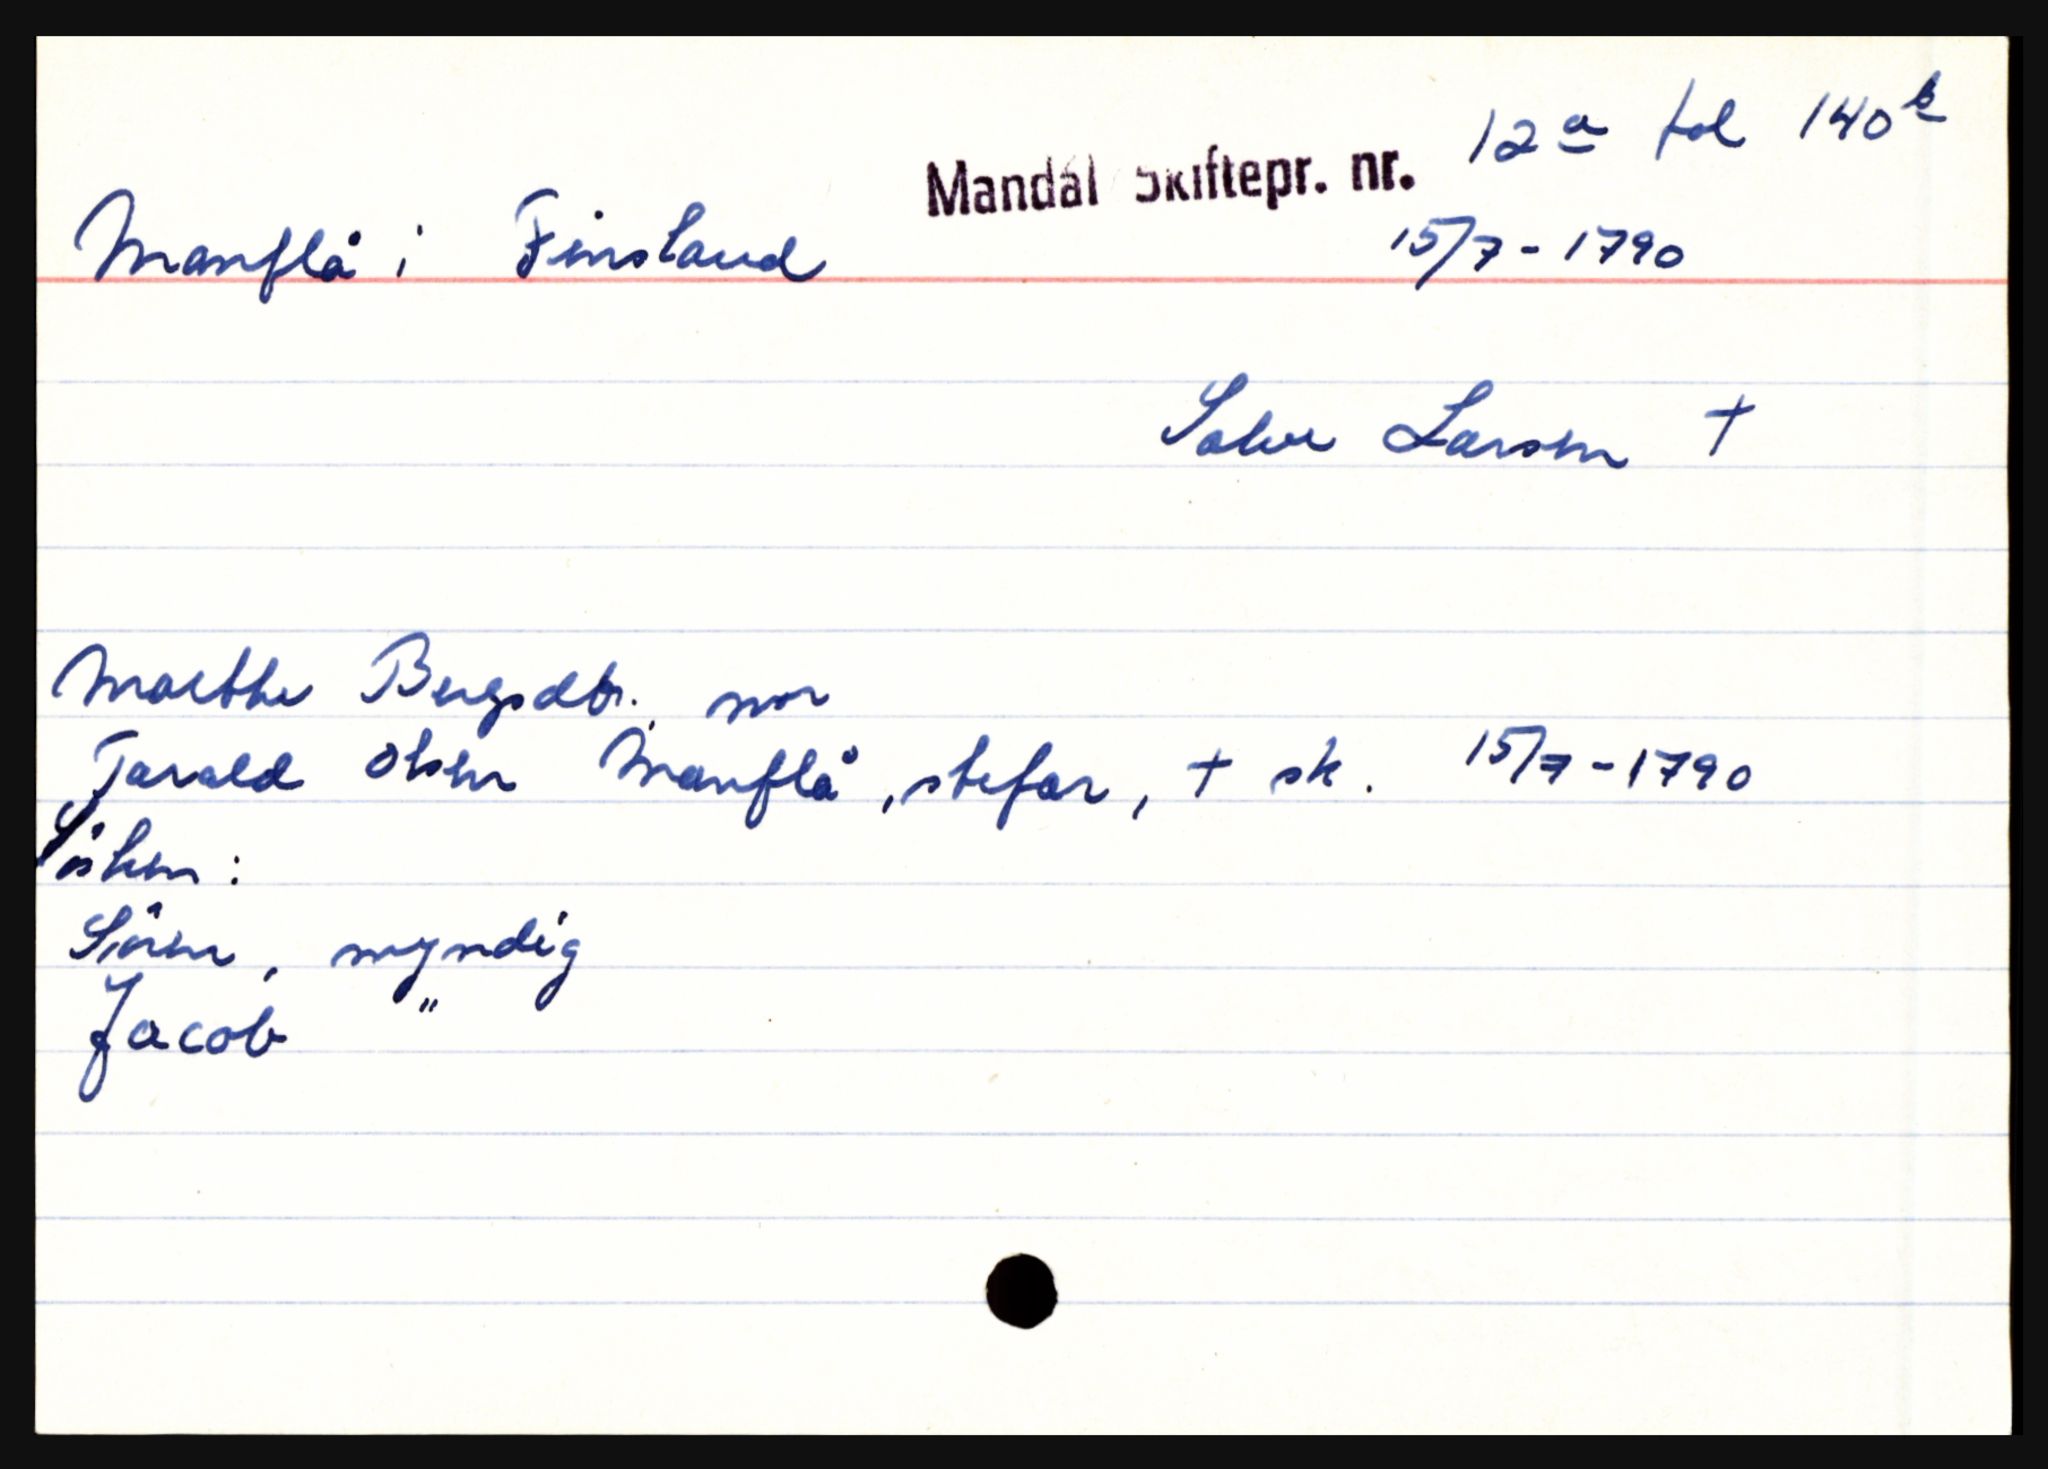 Mandal Skiftepr. nr. 12a fol 140b
Manflå i Finsland 15/7-1790
Salve Larsen †
Marthe Bergsdtr. mor
Tarald Olsen Manflå, stefar, † sk. 15/7-1790
Søsken:
Sören, myndig
Jacob "